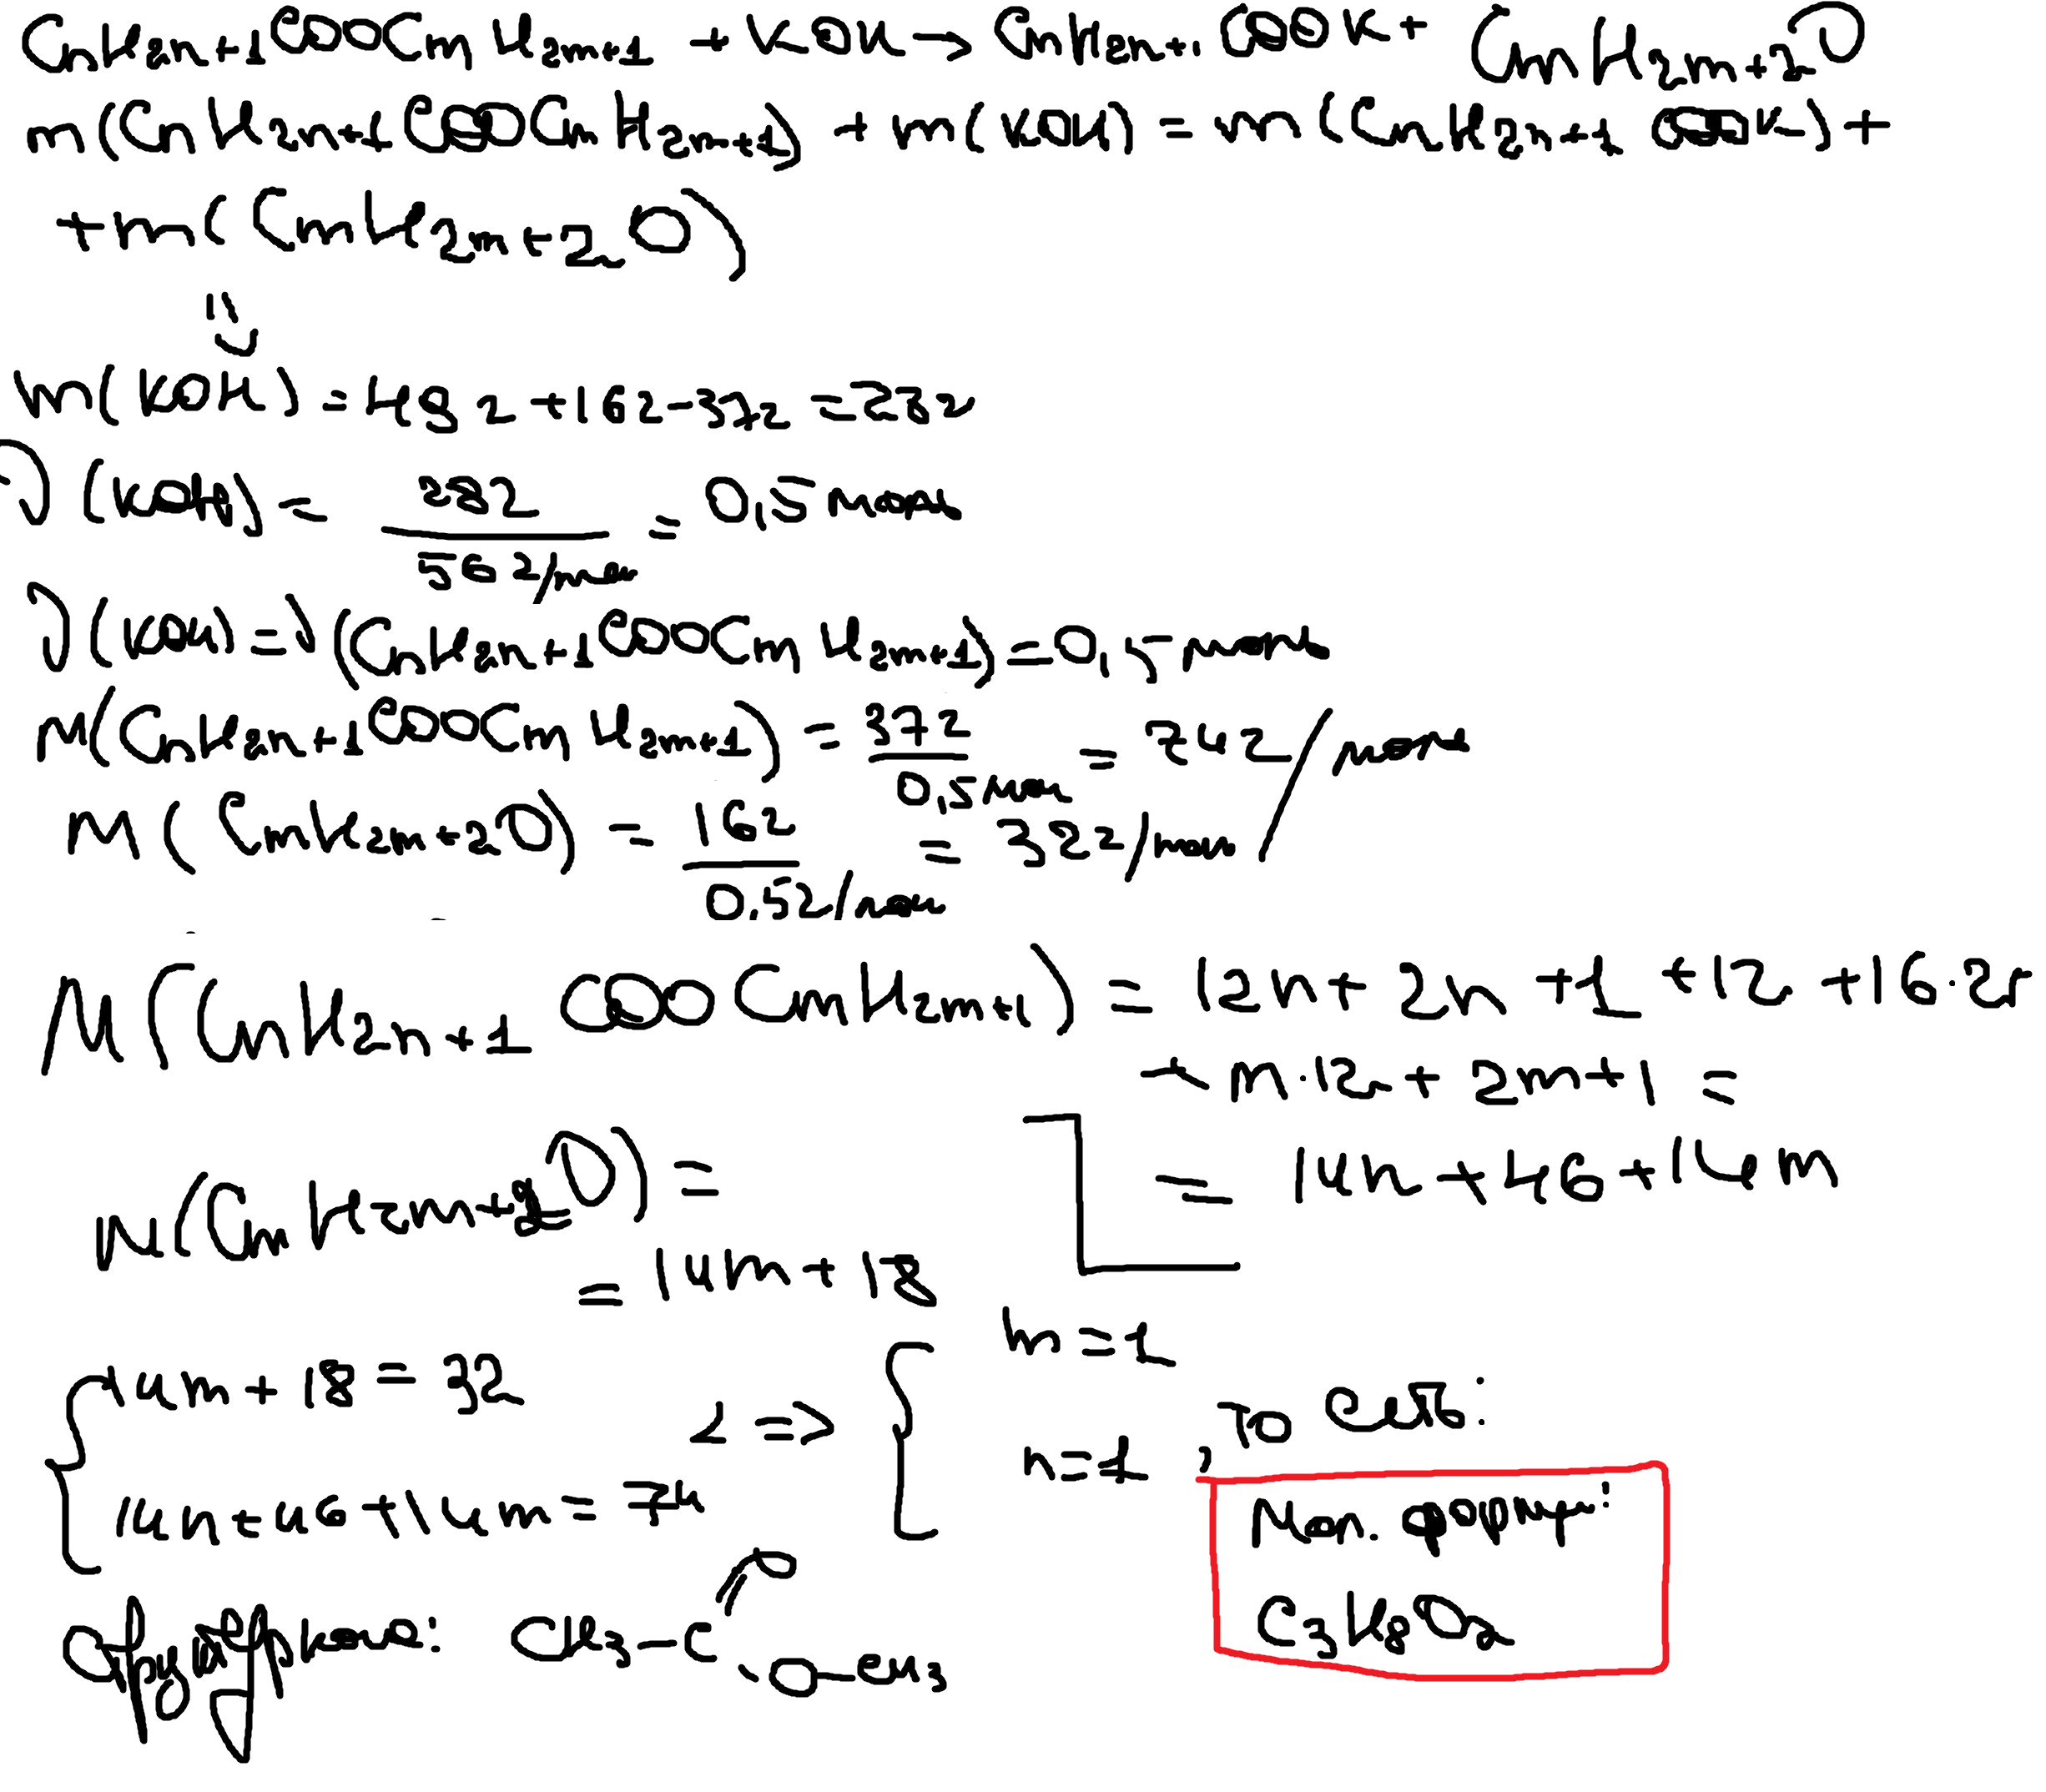 CnH2n+1COOCmH2m+1 + KOH → CnH2n+1COOK + CmH2m+2O
m(CnH2n+1COOCmH2m+1) + m(KOH) = m(CnH2n+1COOK) +
+ m(CmH2m+2O)
m(KOH) = 49г + 16г - 37г = 28г
ν(KOH) = 28г / 56г/моль = 0,5 моль
ν(KOH) = ν(CnH2n+1COOCmH2m+1) = 0,5 моль
M(CnH2n+1COOCmH2m+1) = 37г / 0,5 моль = 74г/моль
M(CmH2m+2O) = 16г / 0,5г/моль = 32г/моль
M(CnH2n+1COOCmH2m+1) = 12n + 2n + 1 + 12 + 16·2+
+ m·12 + 2m + 1 =
= 14n + 46 + 14m
M(CmH2m+2O) =
= 14m + 18
14m + 18 = 32
14n + 46 + 14m = 74
=>
m=1
n=1
, то есть:
Мол. формул:
C3H8O2
Структурная: CH3-C O O-CH3